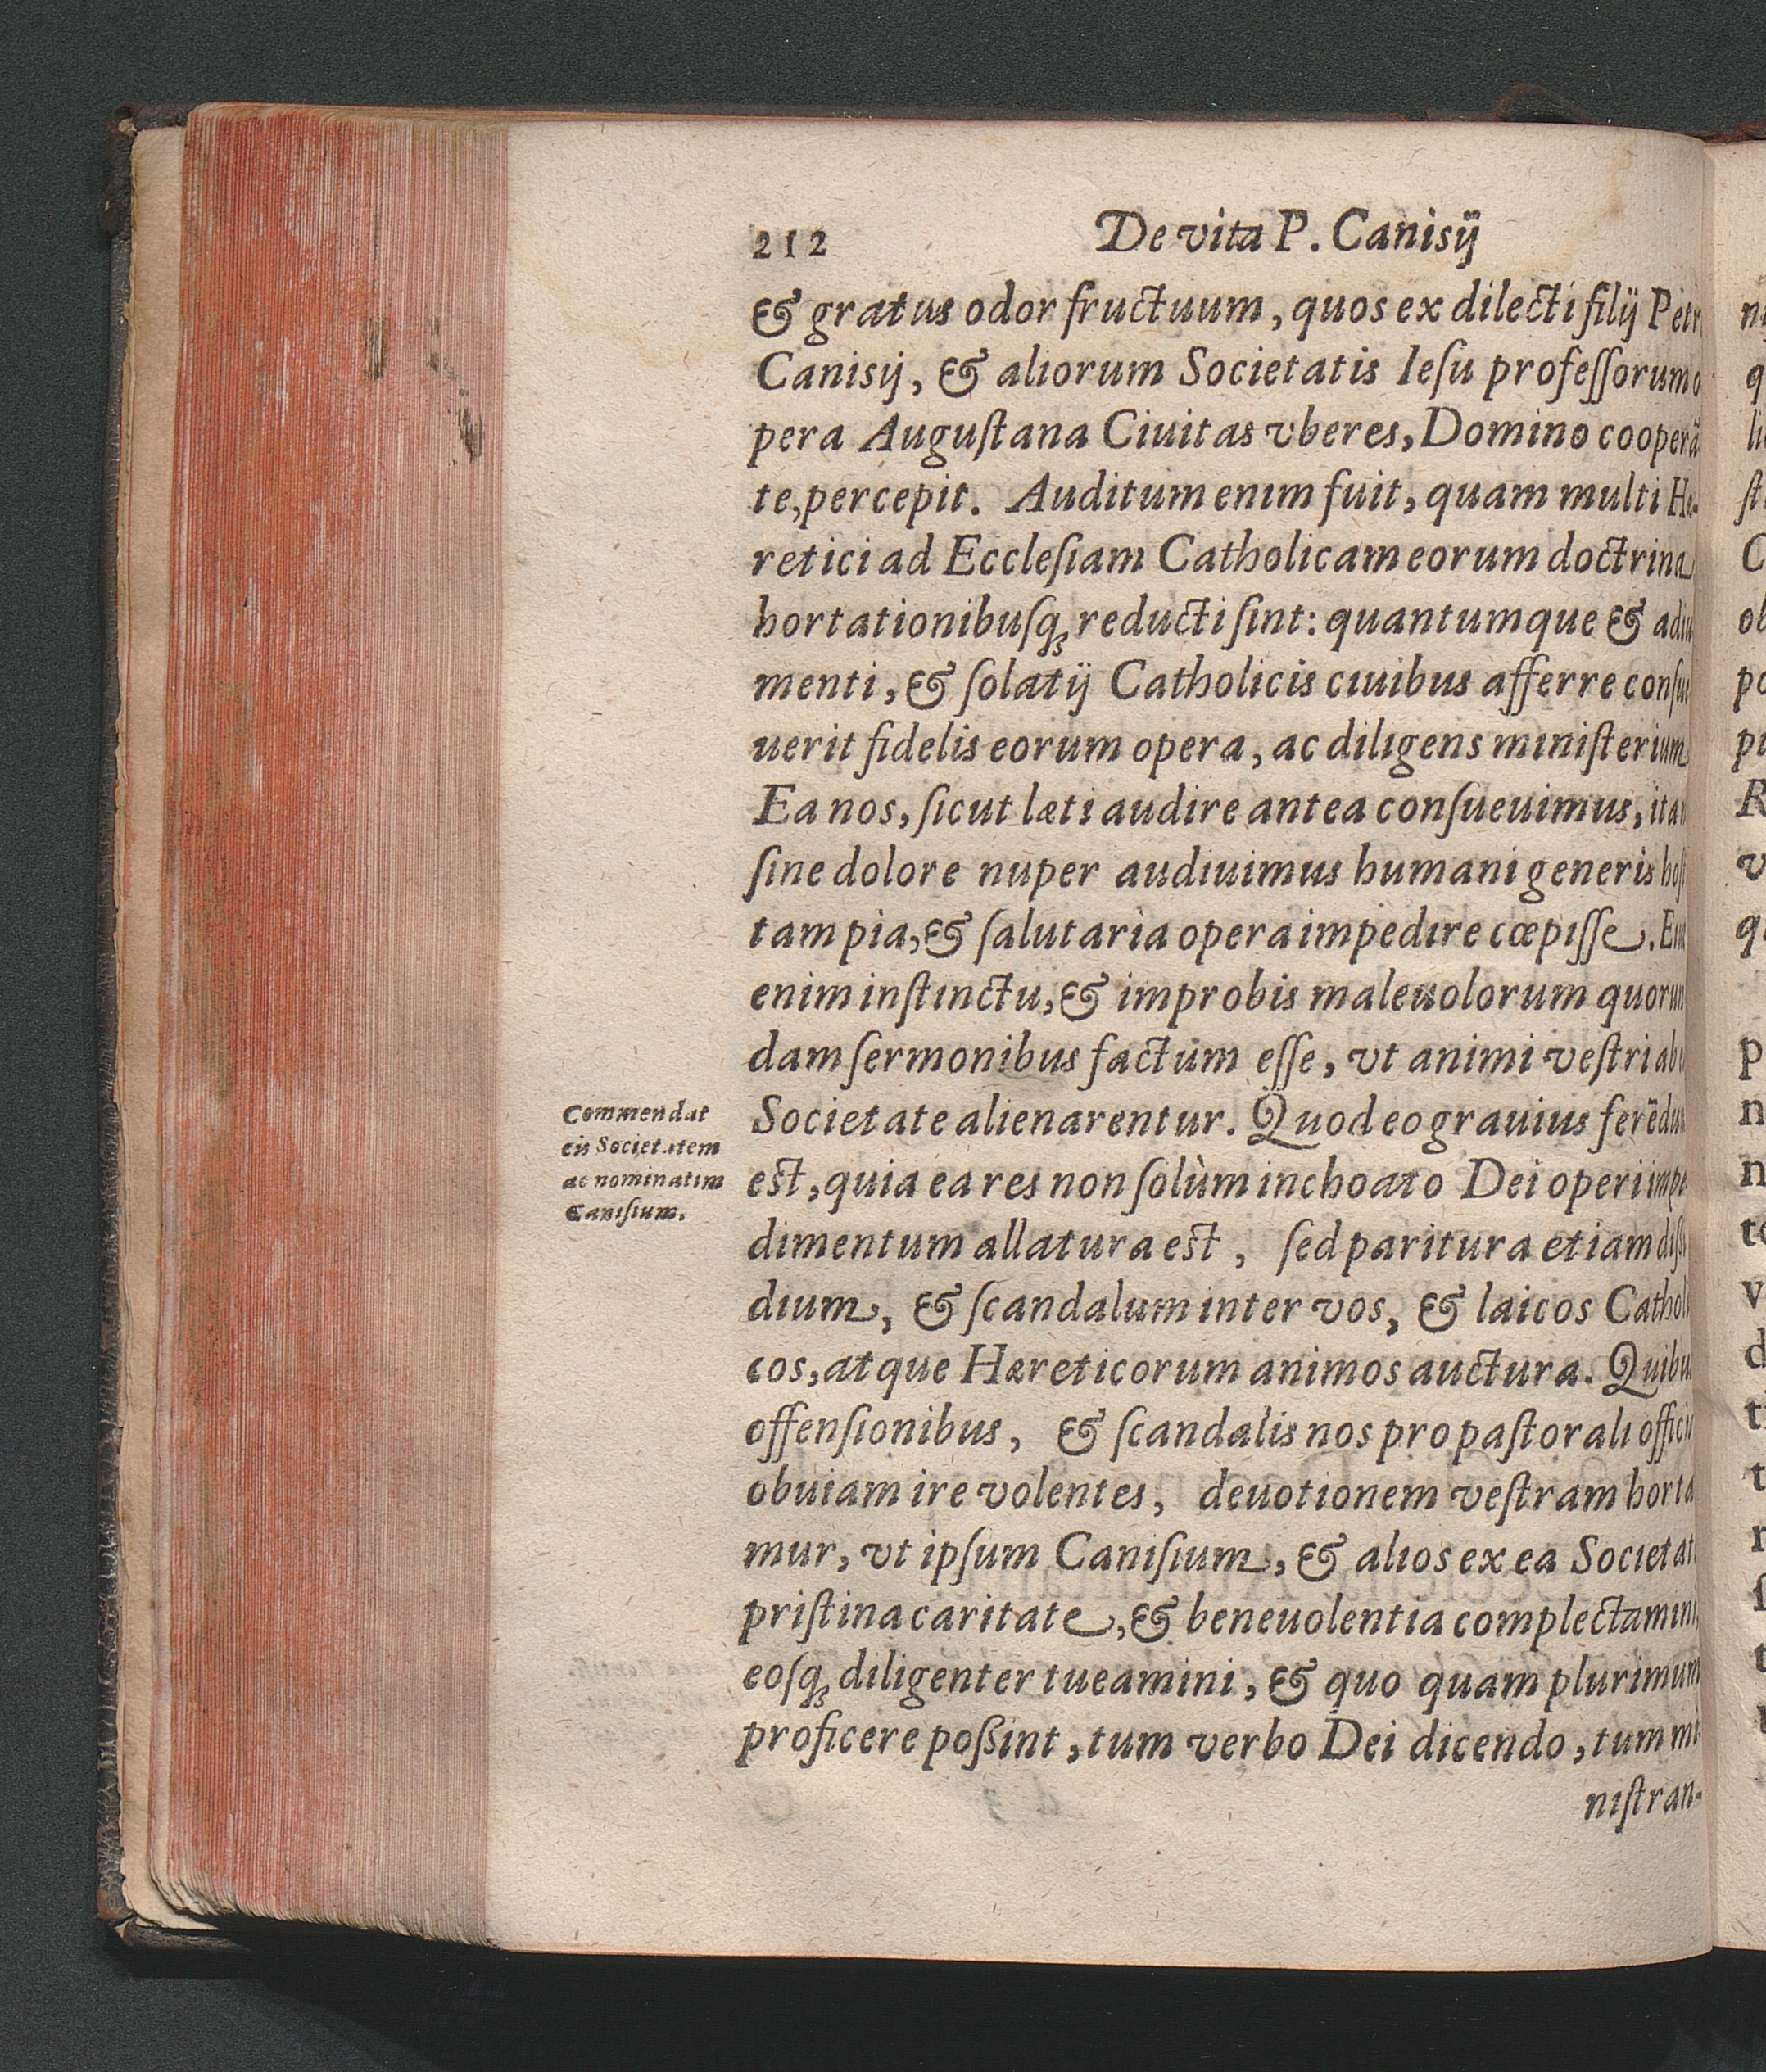 212 De vita P. Canisÿ
& gratus odor fructuum, quos ex dilecti filÿ Petr
Canisÿ, & aliorum Societatis Iesu professorum o
pera Augustana Ciuitas vberes, Domino cooperã
te, percepit. Auditum enim fuit, quam multi Hę-
retici ad Ecclesiam Catholicam eorum doctrina
hortationibusq́ reducti sint: quantumque & adiu
menti, & solatÿ Catholicis ciuibus afferre consue
uerit fidelis eorum opera, ac diligens ministerium
Ea nos, sicut læti audire antea consueuimus, ita
sine dolore nuper audiuimus humani generis host
tam pia, & salutaria opera impedire cœpisse. Eius
enim instinctu, & improbis maleuolorum quorun
dam sermonibus factum esse, vt animi vestri ab
Commendat
eis Societatem
ac nominatim
Canisium.
Societate alienarentur. Quod eo grauius ferẽdum
est, quia ea res non solùm inchoato Dei operi impe
dimentum allatura est, sed paritura etiam dissi
dium, & scandalum inter vos, & laicos Catholi
cos, atque Hæreticorum animos auctura. Quibus
offensionibus, & scandalis nos pro pastorali officio
obuiam ire volentes, deuotionem vestram horta
mur, vt ipsum Canisium, & alios ex ea Societat
pristina caritate, & beneuolentia complectamini,
eosq́ diligenter tueamini, & quo quam plurimum
proficere possint, tum verbo Dei dicendo, tum mi-
nistran-